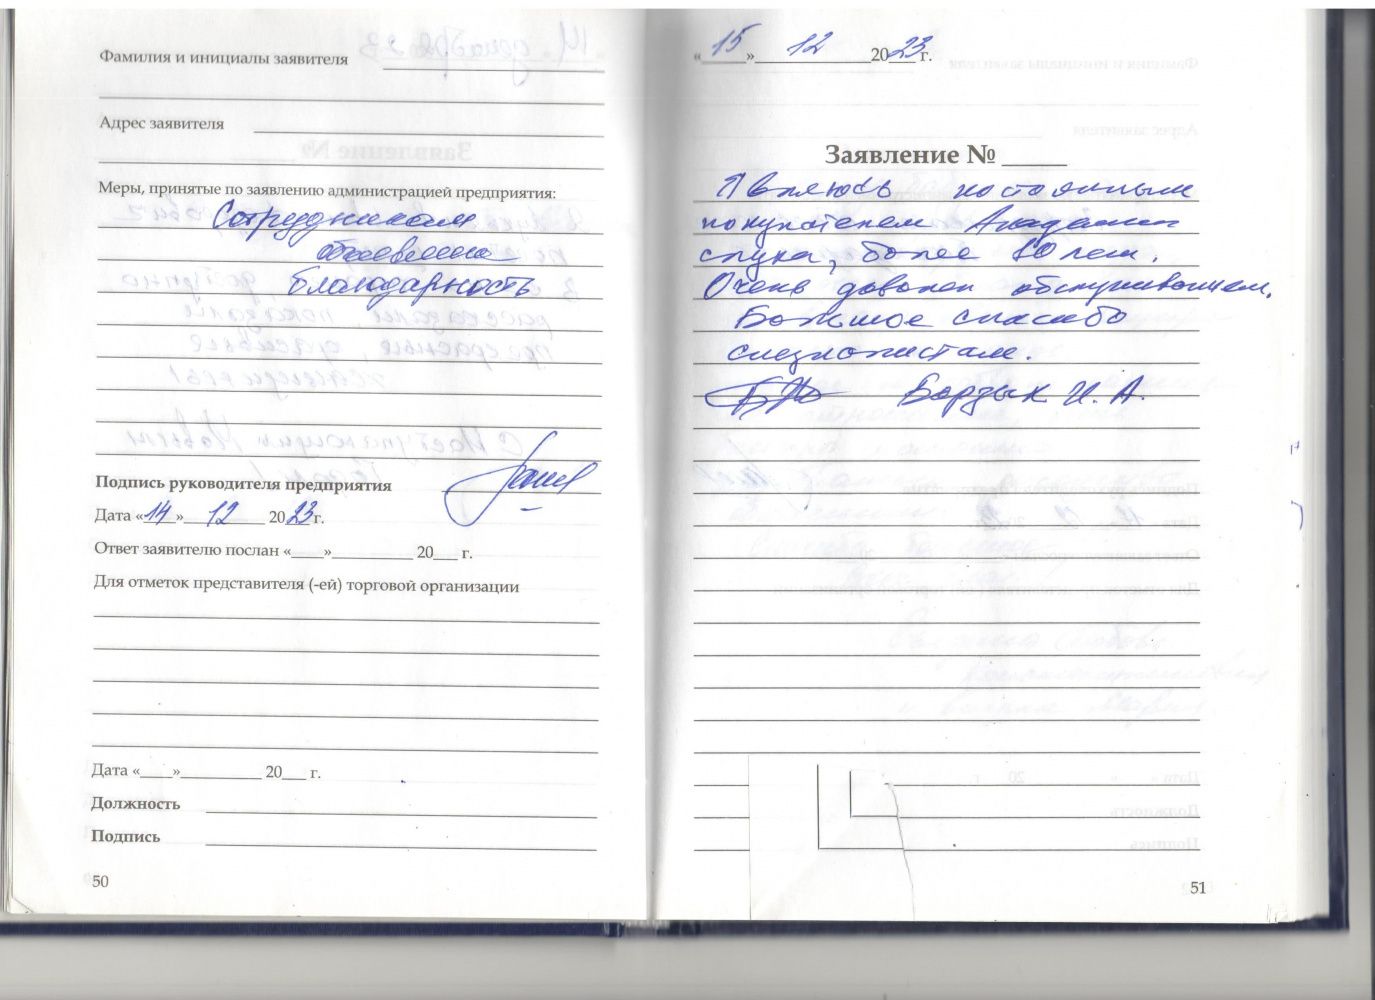 Фамилия и инициалы заявителя
Адрес заявителя
Меры, принятые по заявлению администрацией предприятия:
Сотрудникам
объявлена
благодарность
Подпись руководителя предприятия
Дата «14» 12 2023 г.
Ответ заявителю послан «____»__________ 20___ г.
Для отметок представителя (-ей) торговой организации
Дата «____»__________ 20___ г.
Должность
Подпись
50
«15» 12 2023 г.
Заявление № _____
Являюсь постоянным
покупателем Академии
слуха, более 10 лет.
Очень доволен обслуживанием.
Большое спасибо
специалистам.
Бордых И. А.
51